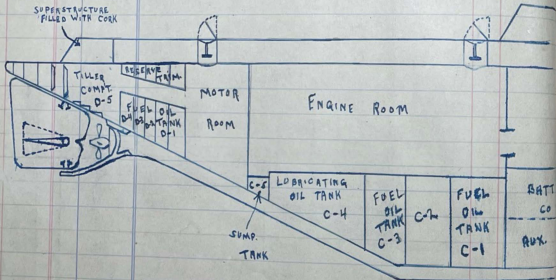 SUPERSTRUCTURE
FILLED WITH CORK
TILLER
COMPT.
D-5
RESERVE TRIM
FUEL OIL
TANK
D-4 D-3 D-2 D-1
MOTOR
ROOM
ENGINE ROOM
C-5
SUMP
TANK
LUBRICATING
OIL TANK
C-4
FUEL
OIL
TANK
C-3
C-2
FUEL
OIL
TANK
C-1
BATT
CO
AUX.